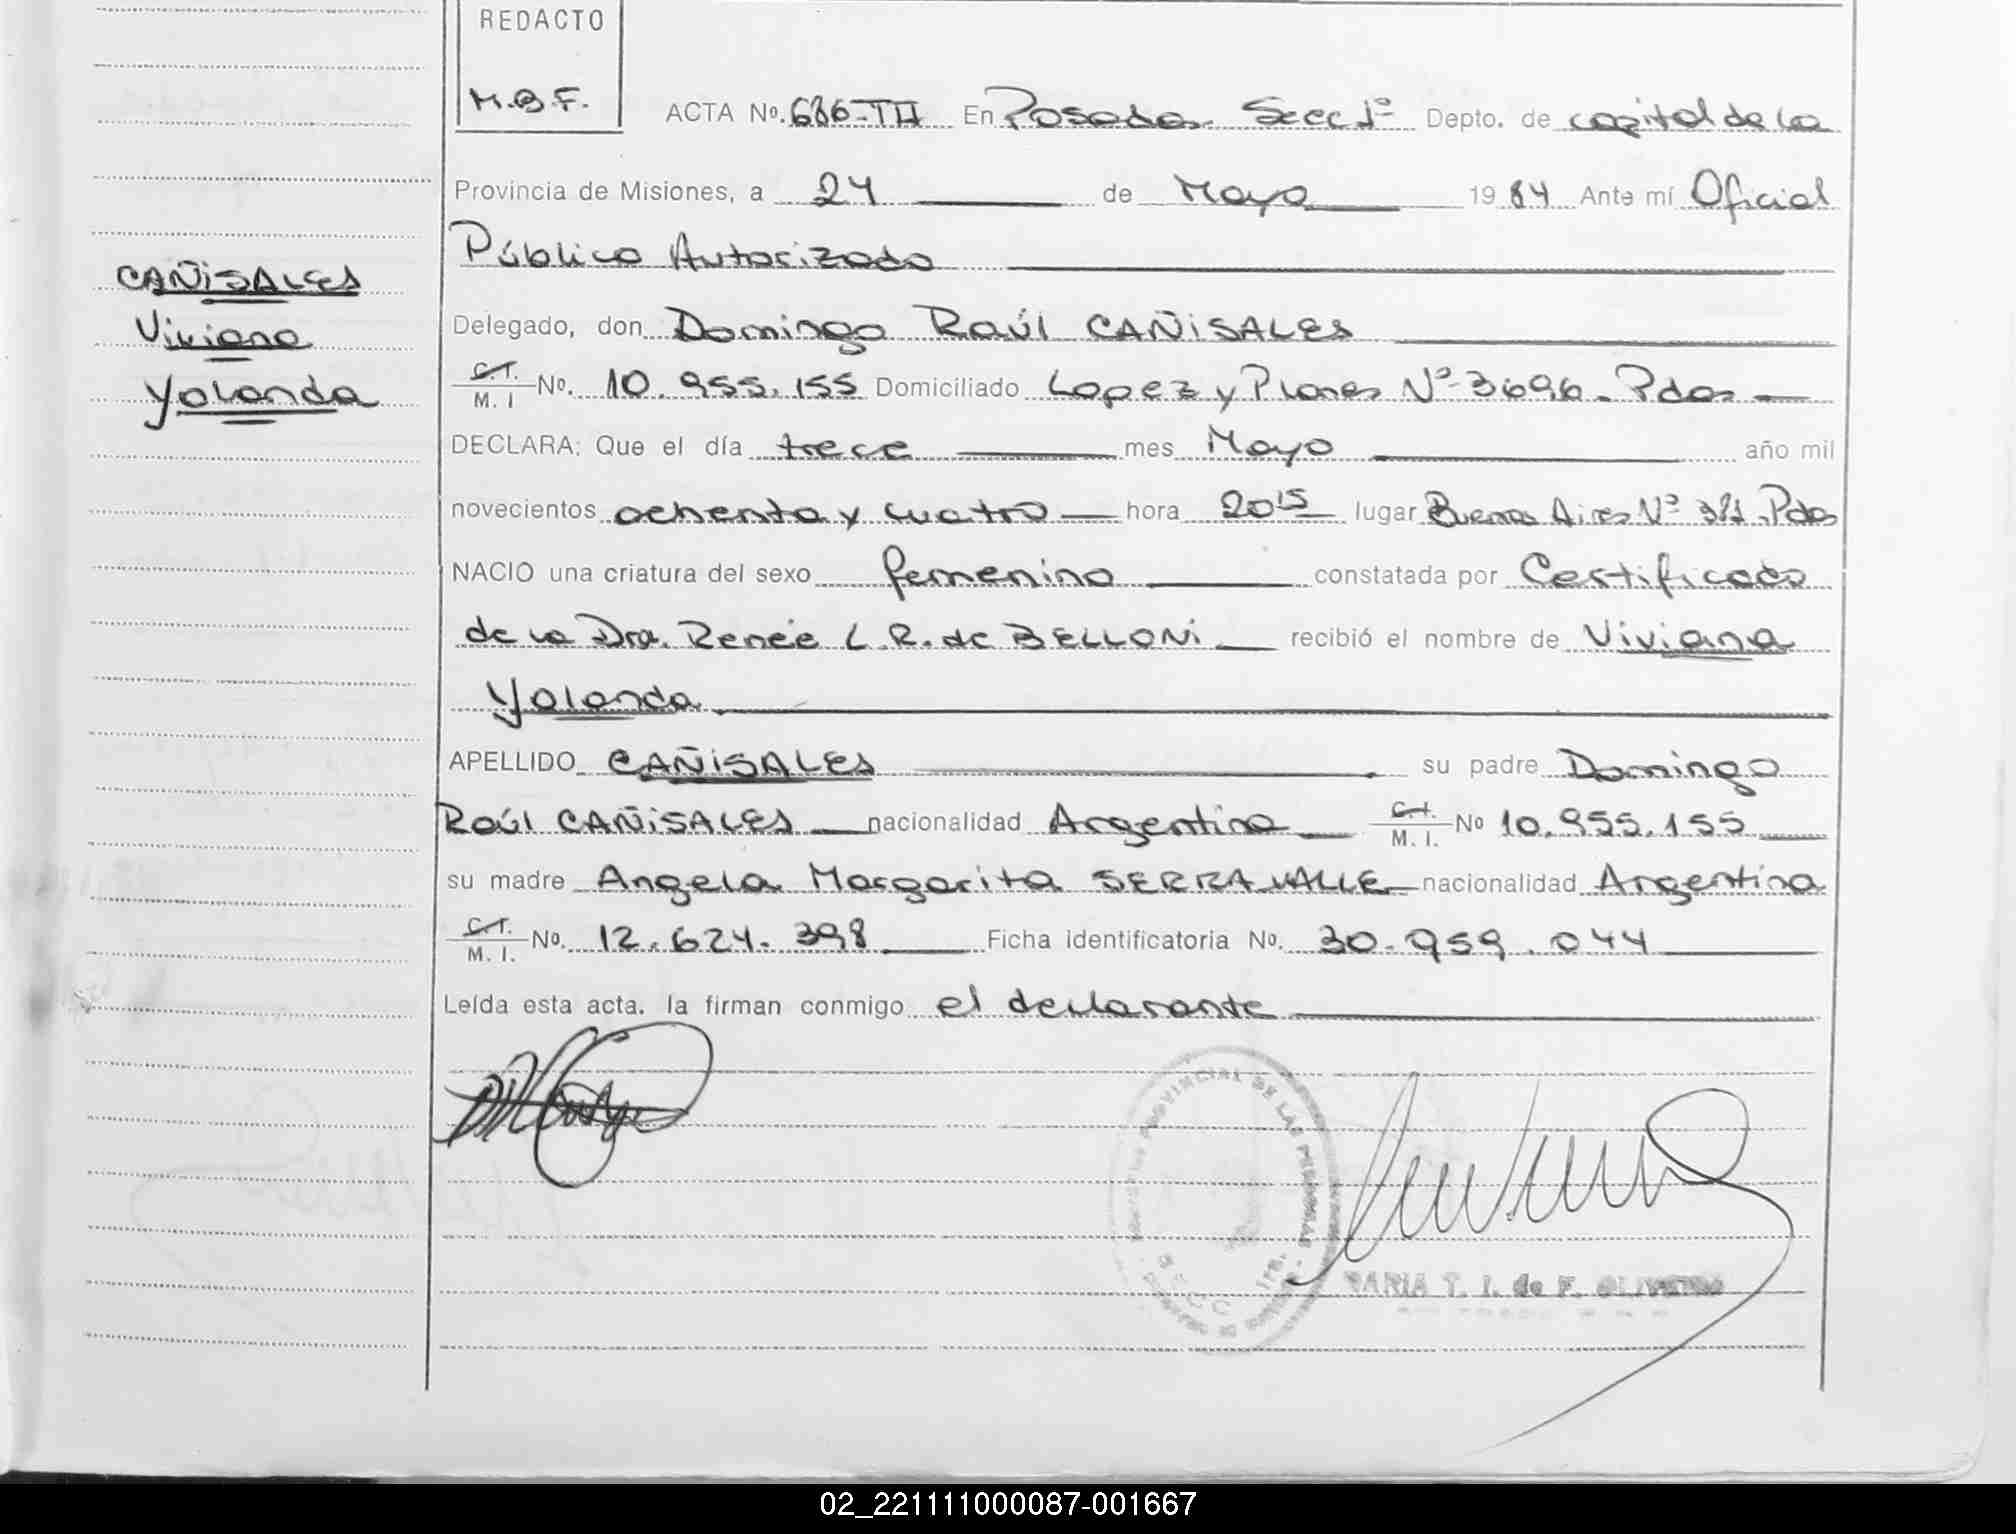 REDACTO
M.B.F.
ACTA No. 686-TII En Posadas Secc 1º Depto. de capital de la
Provincia de Misiones, a 24 de Mayo 1984 Ante mí Oficial
Público Autorizado
CAÑISALES
Viviana
Yolanda
Delegado, don Domingo Raúl CAÑISALES
C.I. M. I No. 10.955.155 Domiciliado Lopez y Planes Nº 3696. Pdas
DECLARA: Que el día trece mes Mayo año mil
novecientos ochenta y cuatro hora 20 15 lugar Buenos Aires Nº Pdas
NACIO una criatura del sexo femenino constatada por Certificado
de la Dra. Renée L. R. de BELLONI recibió el nombre de Viviana
Yolanda
APELLIDO CAÑISALES su padre Domingo
Raúl CAÑISALES nacionalidad Argentina C.I. M. I. No 10.955.155
su madre Angela Margarita SERRAVALLE nacionalidad Argentina
C.I. M. I. No. 12.624.398 Ficha identificatoria No. 30.959.044
Leída esta acta. la firman conmigo el declarante
PROVINCIAL DE LAS PERSONAS
MARIA T. I. de F. OLIVEIRA
02_221111000087-001667